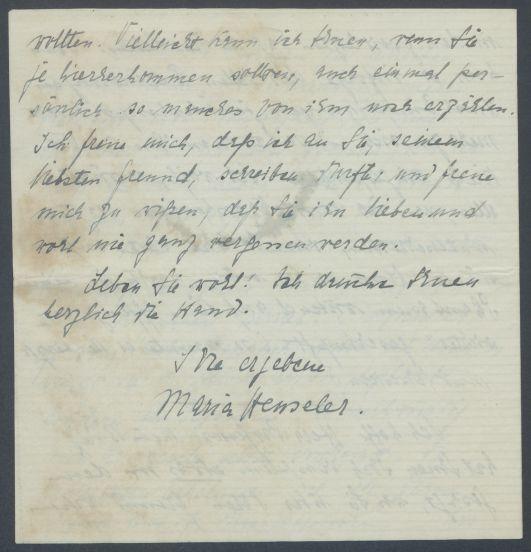 wollten. Vielleicht kann ich Ihnen, wenn Sie
je hierherkommen sollten, auch einmal per-
sönlich so manches von ihm noch erzählen.
Ich freue mich, daß ich an Sie, seinen
liebsten Freund, schreiben durfte, und freue
mich zu wißen, daß Sie ihn lieben und
wohl nie ganz vergessen werden.
Leben Sie wohl! Ich drücke Ihnen
herzlich die Hand.
Ihre ergebene
Maria Henseler.